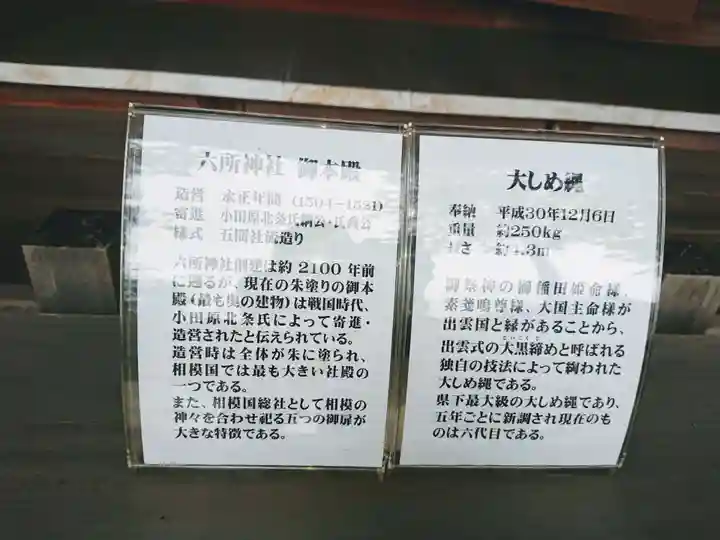 六所神社 御本殿
造営 永正年間(1504-1521)
寄進 小田原北条氏綱公・氏康公
様式 五間社流造り
六所神社創建は約 2100 年前
に遡るが、現在の朱塗りの御本
殿(最も奥の建物)は戦国時代、
小田原北条氏によって寄進・
造営されたと伝えられている。
造営時は全体が朱に塗られ、
相模国では最も大きい社殿の
一つである。
また、相模国総社として相模の
神々を合わせ祀る五つの御扉が
大きな特徴である。
大しめ縄
奉納 平成30年12月6日
重量 約250kg
長さ 約4.3m
御祭神の櫛稲田姫命様、
素戔嗚尊様、大国主命様が
出雲国と縁があることから、
出雲式の大黒締めと呼ばれる
だいこくじ
独自の技法によって綯われた
大しめ縄である。
県下最大級の大しめ縄であり、
五年ごとに新調され現在のも
のは六代目である。